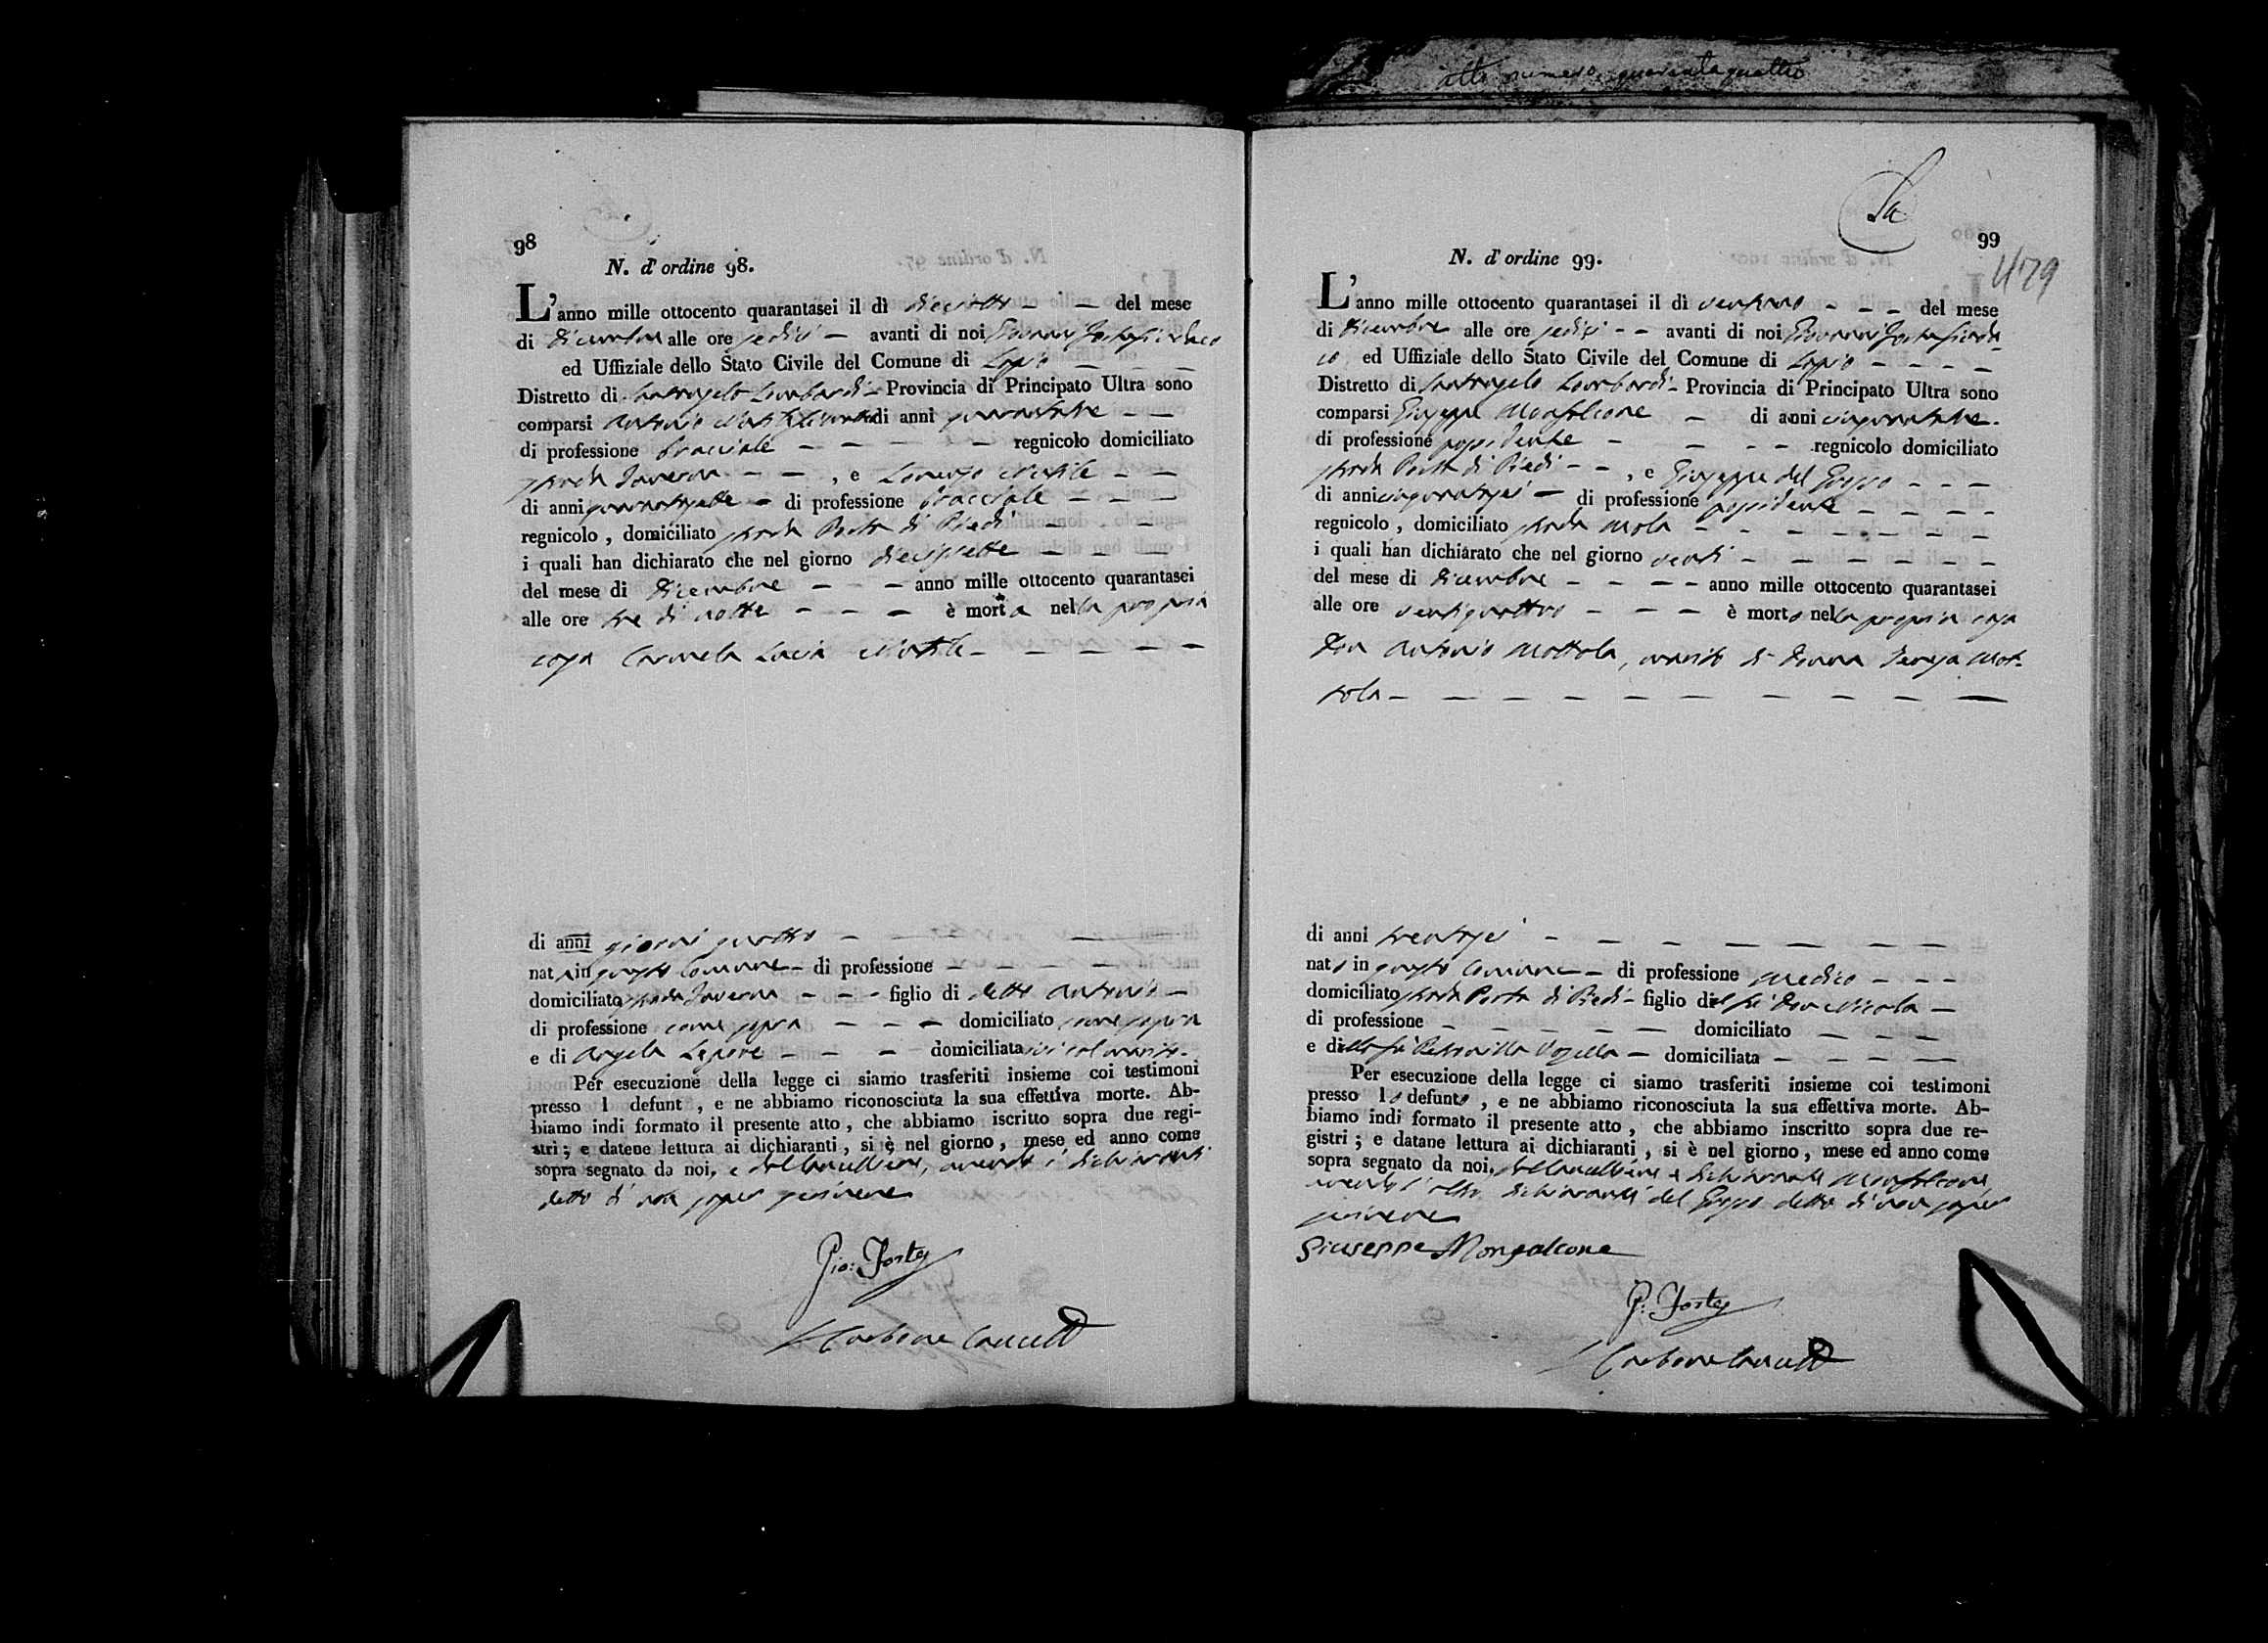 atto numero quarantaquattro
98
N. d'ordine 98.
L'anno mille ottocento quarantasei il dì dieciotto - - - del mese
di Dicembre alle ore sedici - avanti di noi Giovanni Forte Sindaco
ed Uffiziale dello Stato Civile del Comune di Lapio - - -
Distretto di Santangelo Lombardi - Provincia di Principato Ultra sono
comparsi Antonio di anni quarantatre - -
di professione bracciale - - - - - regnicolo domiciliato
strada Taverna - - , e Lorenzo - -
di anni quarantasette - di professione bracciale - - -
regnicolo , domiciliato strada Porta di Piedi - - -
i quali han dichiarato che nel giorno diecissette - - -
del mese di Dicembre - - - anno mille ottocento quarantasei
alle ore tre di notte - - - è morta nella propria
casa Carmela Lucia - - - - -
di anni giorni quattro - - - -
nata in questo Comune - di professione - - - -
domiciliato strada Taverna - - - figlio di detto Antonio -
di professione come sopra - - - domiciliato come sopra
e di Angela Lepore - - - domiciliata ivi col marito -
Per esecuzione della legge ci siamo trasferiti insieme coi testimoni
presso l defunt , e ne abbiamo riconosciuta la sua effettiva morte. Ab-
biamo indi formato il presente atto , che abbiamo iscritto sopra due regi-
stri ; e datene lettura ai dichiaranti , si è nel giorno , mese ed anno come
sopra segnato da noi, e dal Cancelliere, avendo i dichiaranti
detto di non saper scrivere
Gio: Forte
Carbone Cancell
Sa
99
479
N. d'ordine 99.
L'anno mille ottocento quarantasei il dì ventuno - - - del mese
di Dicembre alle ore sedici - - avanti di noi Giovanni Forte Sinda-
co ed Uffiziale dello Stato Civile del Comune di Lapio - - - -
Distretto di Santangelo Lombardi - Provincia di Principato Ultra sono
comparsi Giuseppe Monfalcone - di anni cinquantatre -
di professione possidente - - - - regnicolo domiciliato
strada Porta di Piedi - - , e Giuseppe del Grosso - - -
di anni cinquantasei - di professione possidente - - - -
regnicolo , domiciliato strada Mola - - - - - - -
i quali han dichiarato che nel giorno venti - - - - - -
del mese di Dicembre - - - - anno mille ottocento quarantasei
alle ore ventiquattro - - - è morto nella propria casa
Don Antonio Mottola, marito di Donna Teresa Mot-
tola - - - - - - - - - - -
di anni trentasei - - - - - - -
nato in questo Comune - di professione Medico - - -
domiciliato strada Porta di Piedi - figlio del fu Don Nicola -
di professione - - - - - domiciliato - - -
e della fu Petronilla - domiciliata - - - -
Per esecuzione della legge ci siamo trasferiti insieme coi testimoni
presso lo defunto , e ne abbiamo riconosciuta la sua effettiva morte. Ab-
biamo indi formato il presente atto , che abbiamo inscritto sopra due re-
gistri ; e datane lettura ai dichiaranti , si è nel giorno , mese ed anno come
sopra segnato da noi, dal Cancelliere e dichiarante Monfalcone
avendo l'altro dichiarante del Grosso detto di non saper
scrivere
Giuseppe Monfalcone
G: Forte
Carbone Cancell